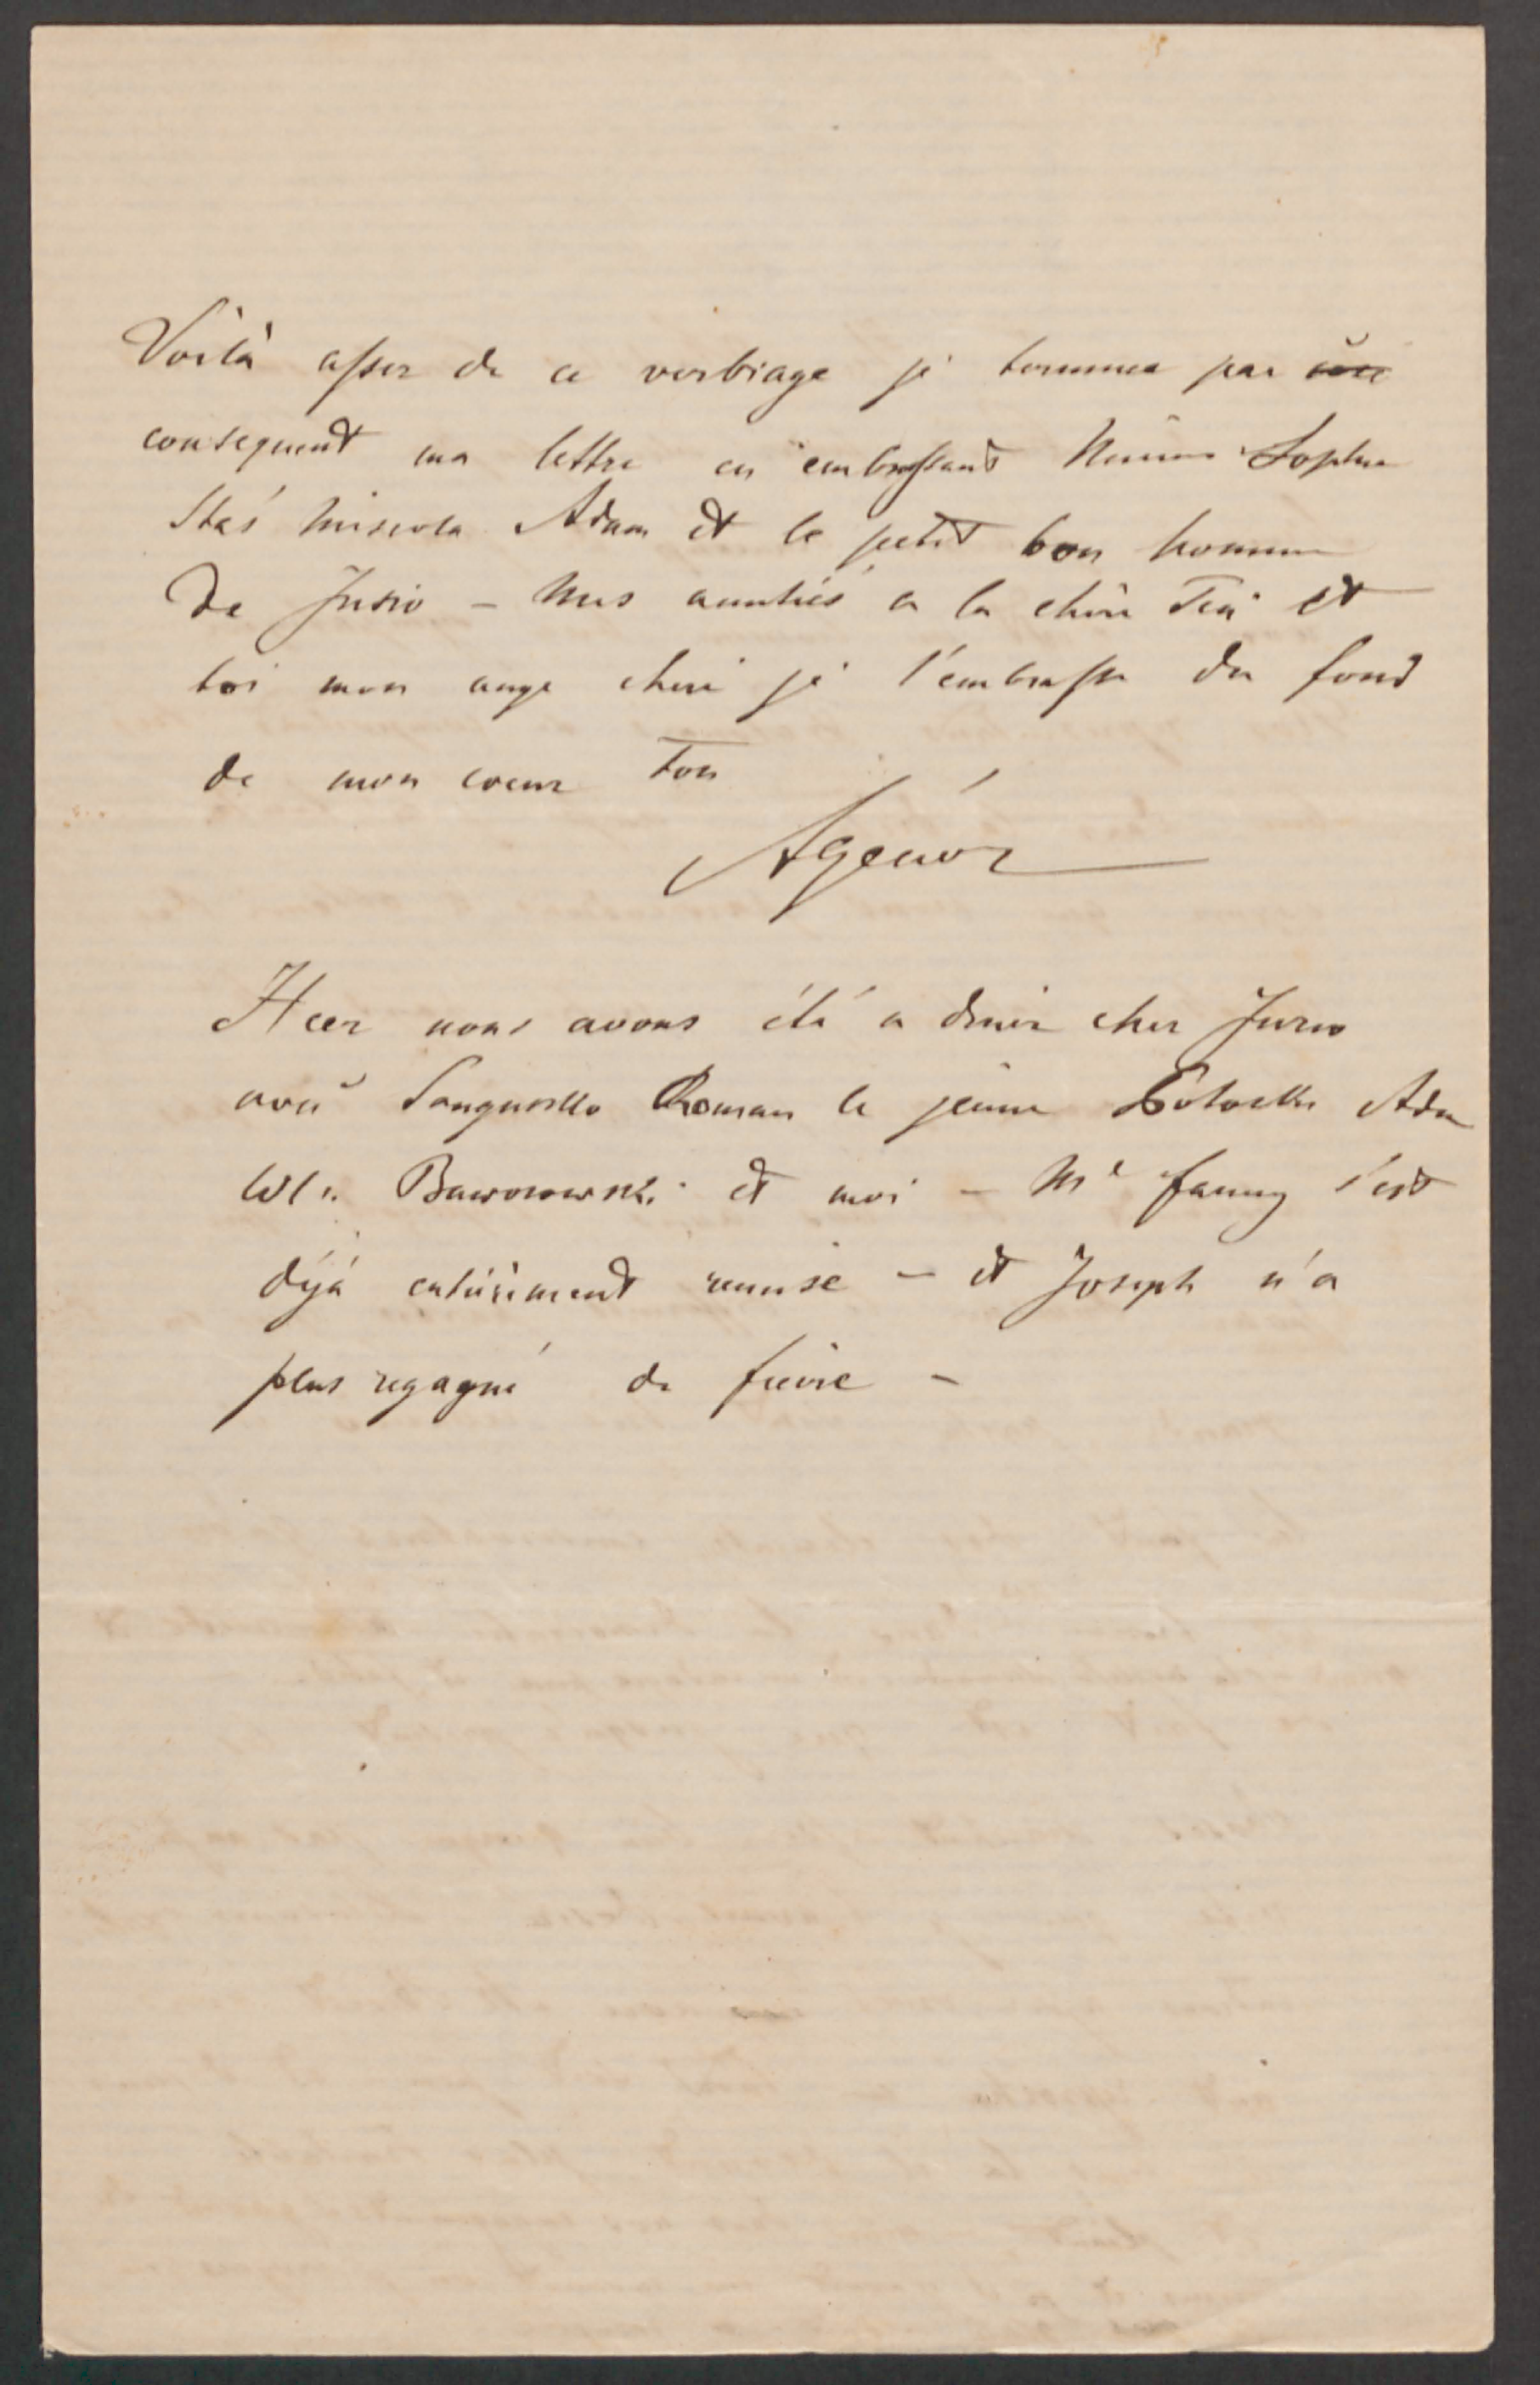 Voilà assez de ce verbiage je termine par
consequent ma lettre en embrassant Mimi Sophie
Staś Adam et le petit bon homme
de Jusio – Mes amitiés a la chère et
toi mon ange cheri je t'embrasse du fond
de mon coeur Ton
Agenór
Hier nous avons été a diner chez
avec Sanguszko Roman le jeune Potocki Adam
Wl. Baworowski et moi – Me Fanny s'est
déjà entièrement remise – et Joseph n'a
plus regagné de fièvre –